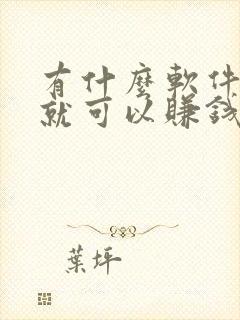 有什麼軟件
就可以賺錢
葉坪